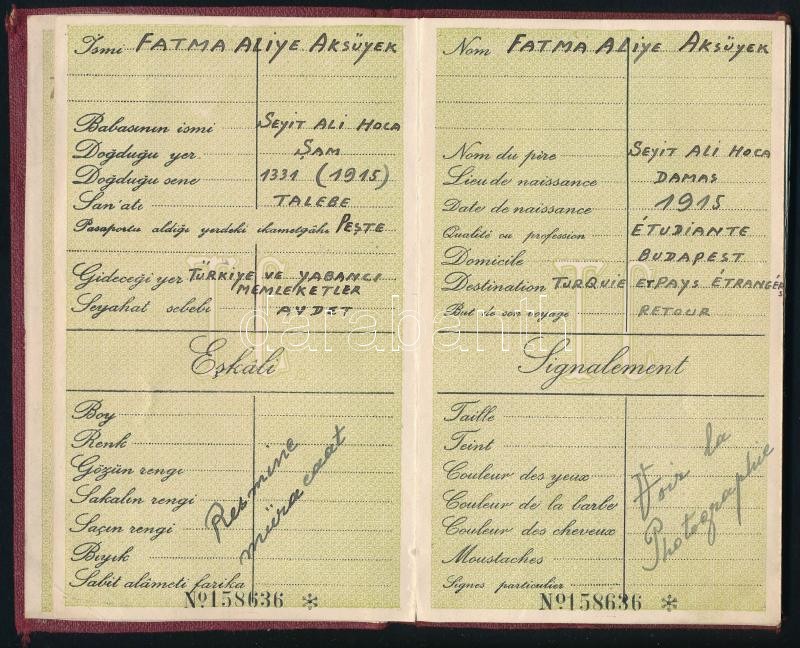 Ismi FATMA ALİYE AKSÜYEK
Babasının ismi SEYİT ALİ HOCA
Doğduğu yer ŞAM
Doğduğu sene 1331 (1915)
San'atı TALEBE
Pasaportu aldığı yerdeki ikametgâhı PEŞTE
Gideceği yer TÜRKİYE VE YABANCI
MEMLEKETLER
Seyahat sebebi AVDET
Eşkâli
Boy
Renk
Gözün rengi
Sakalın rengi
Saçın rengi
Bıyık
Sabit alâmeti farika
Resmine
müracaat
No 158636 *
Nom FATMA ALİYE AKSÜYEK
Nom du père SEYİT ALİ HOCA
Lieu de naissance DAMAS
Date de naissance 1915
Qualité ou profession ÉTUDIANTE
Domicile BUDAPEST
Destination TURQUIE ET PAYS ÉTRANGÉRS
But de son voyage RETOUR
Signalement
Taille
Teint
Couleur des yeux
Couleur de la barbe
Couleur des cheveux
Moustaches
Signes particulier
Voir la
Photographie
No 158636 *
darabanth
TC
TC